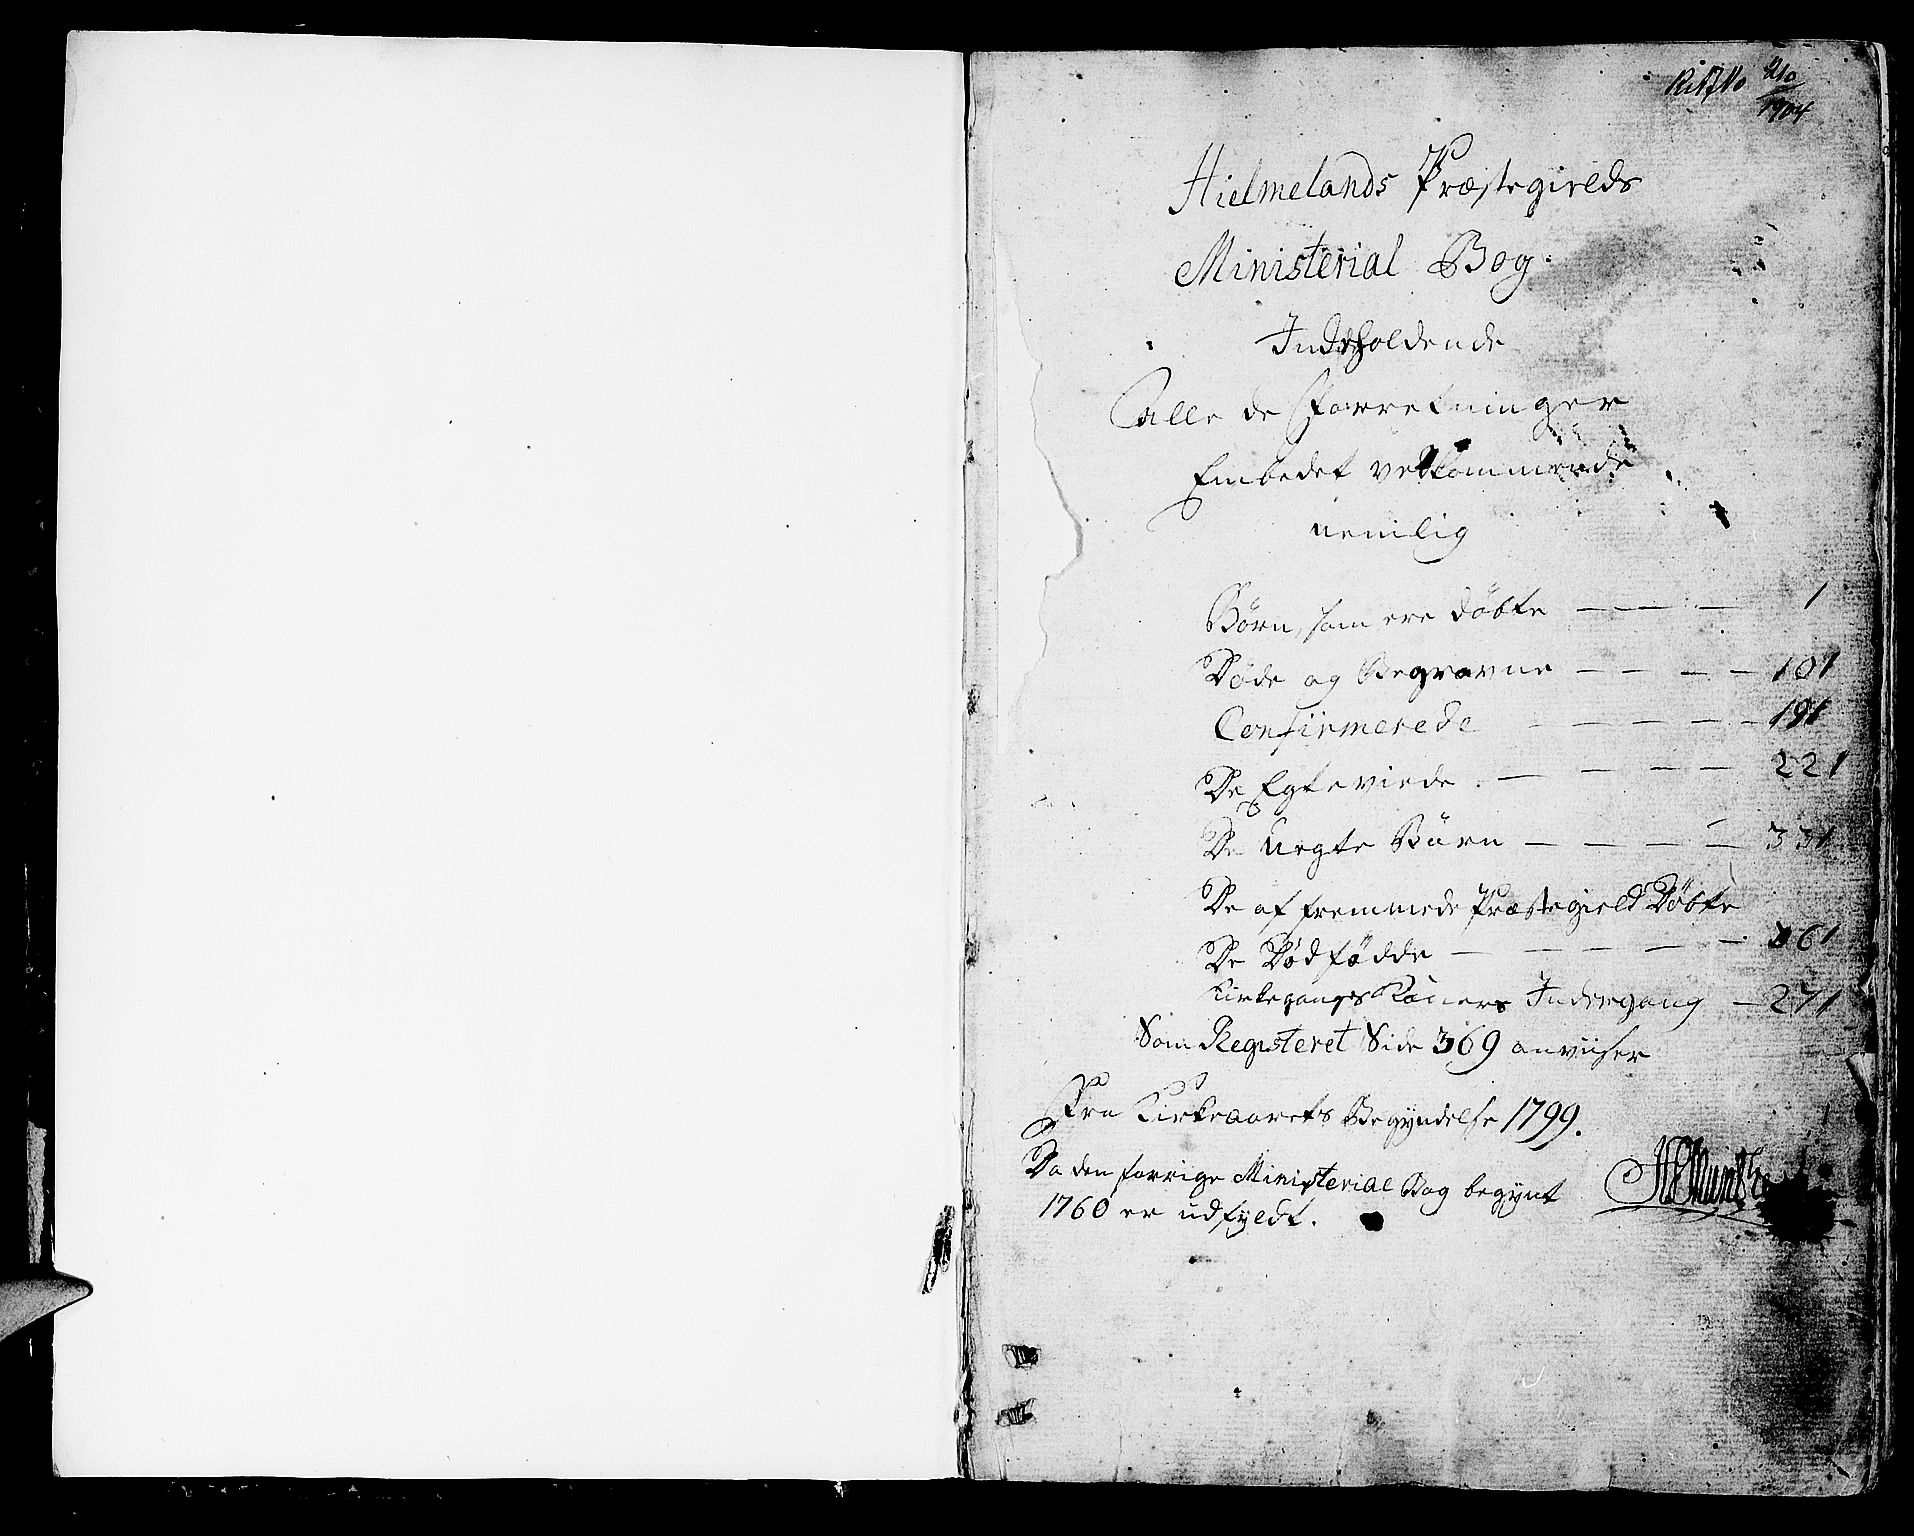 1904
Hielmelands Præstegields
Ministerial Bog
Indeholdende
alle de Forretninger
Embedet vedkommende
nemlig
Børn, som ere døbte — — — 1
Døde og Begravne — — — — 101
Confirmerede — — — — 191
De Egteviede — — — — 221
De Uegte Børn — — — — 331
De af fremmede Præstegield Døbte
De Dødfødde — — — — — 361
Kirkegangs Koners Indergang — 271
Som Registeret Side 369 anviiser
Fra Kirkeaarets Begyndelse 1799.
Da den forrige Ministerial Bog begynt
1760 er udfyldt.